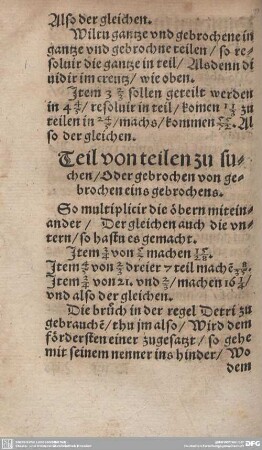 Also der gleichen.
Wiltu gantze vnd gebrochene in
gantze vnd gebrochne teilen / so re=
soluir die gantze in teil / Als denn di
uidir im creutz / wie oben.
Item 3 2/3 sollen geteilt werden
in 4 / resoluir in teil / komen zu
teilen in / machs / kommen Al
so der gleichen.
Teil von teilen zu su=
chen / Oder gebrochen von ge=
brochen eins gebrochens.
So multiplicir die öbern mitein=
ander / Der gleichen auch die vn=
tern / so hastu es gemacht.
Item von machen
Item von dreier 7 teil machē
Item von 21. vnd / machen 16 /
vnd also der gleichen.
Die brüch in der regel Detri zu
gebrauchē / thu jm also / Wird dem
fördersten einer zugesatzt / so gehe
mit seinem nenner ins hinder / Wo
dem